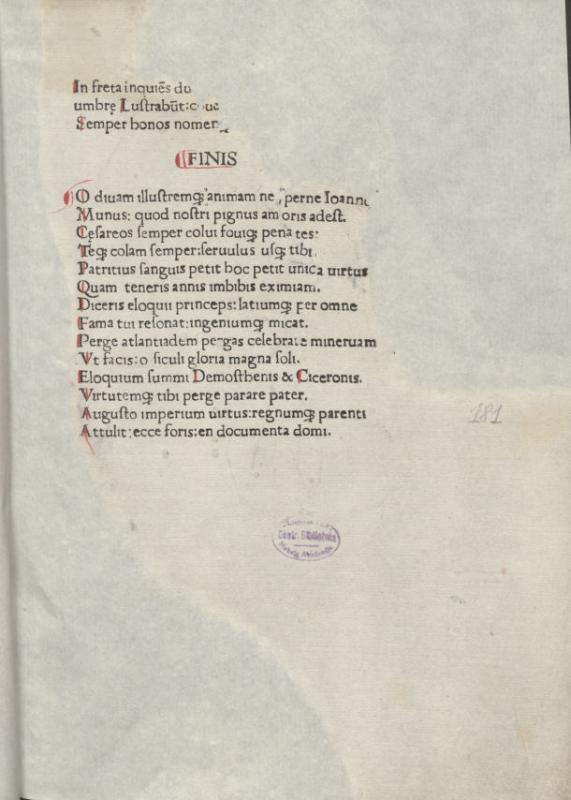 In freta inquiēs du
umbrę Lustrabūt: c
Semper honos nomen
FINIS
O diuam illustremqꝫ animam ne perne Ioanni
Munus: quod nostri pignus amoris adest.
Cęsareos semper colui fouiqꝫ penates:
Teqꝫ colam semper: seruulus usqꝫ tibi.
Patritius sanguis petit hoc petit unica uirtus
Quam teneris annis imbibis eximiam.
Diceris eloquii princeps: latiumqꝫ per omne
Fama tui resonat: ingeniumqꝫ micat.
Perge atlantiadem pergas celebrare mineruam
Vt facis: o siculi gloria magna soli.
Eloquium summi Demosthenis & Ciceronis.
Virtutemqꝫ tibi perge parare pater.
Augusto imperium uirtus: regnumqꝫ parenti
Attulit: ecce foris: en documenta domi.
181